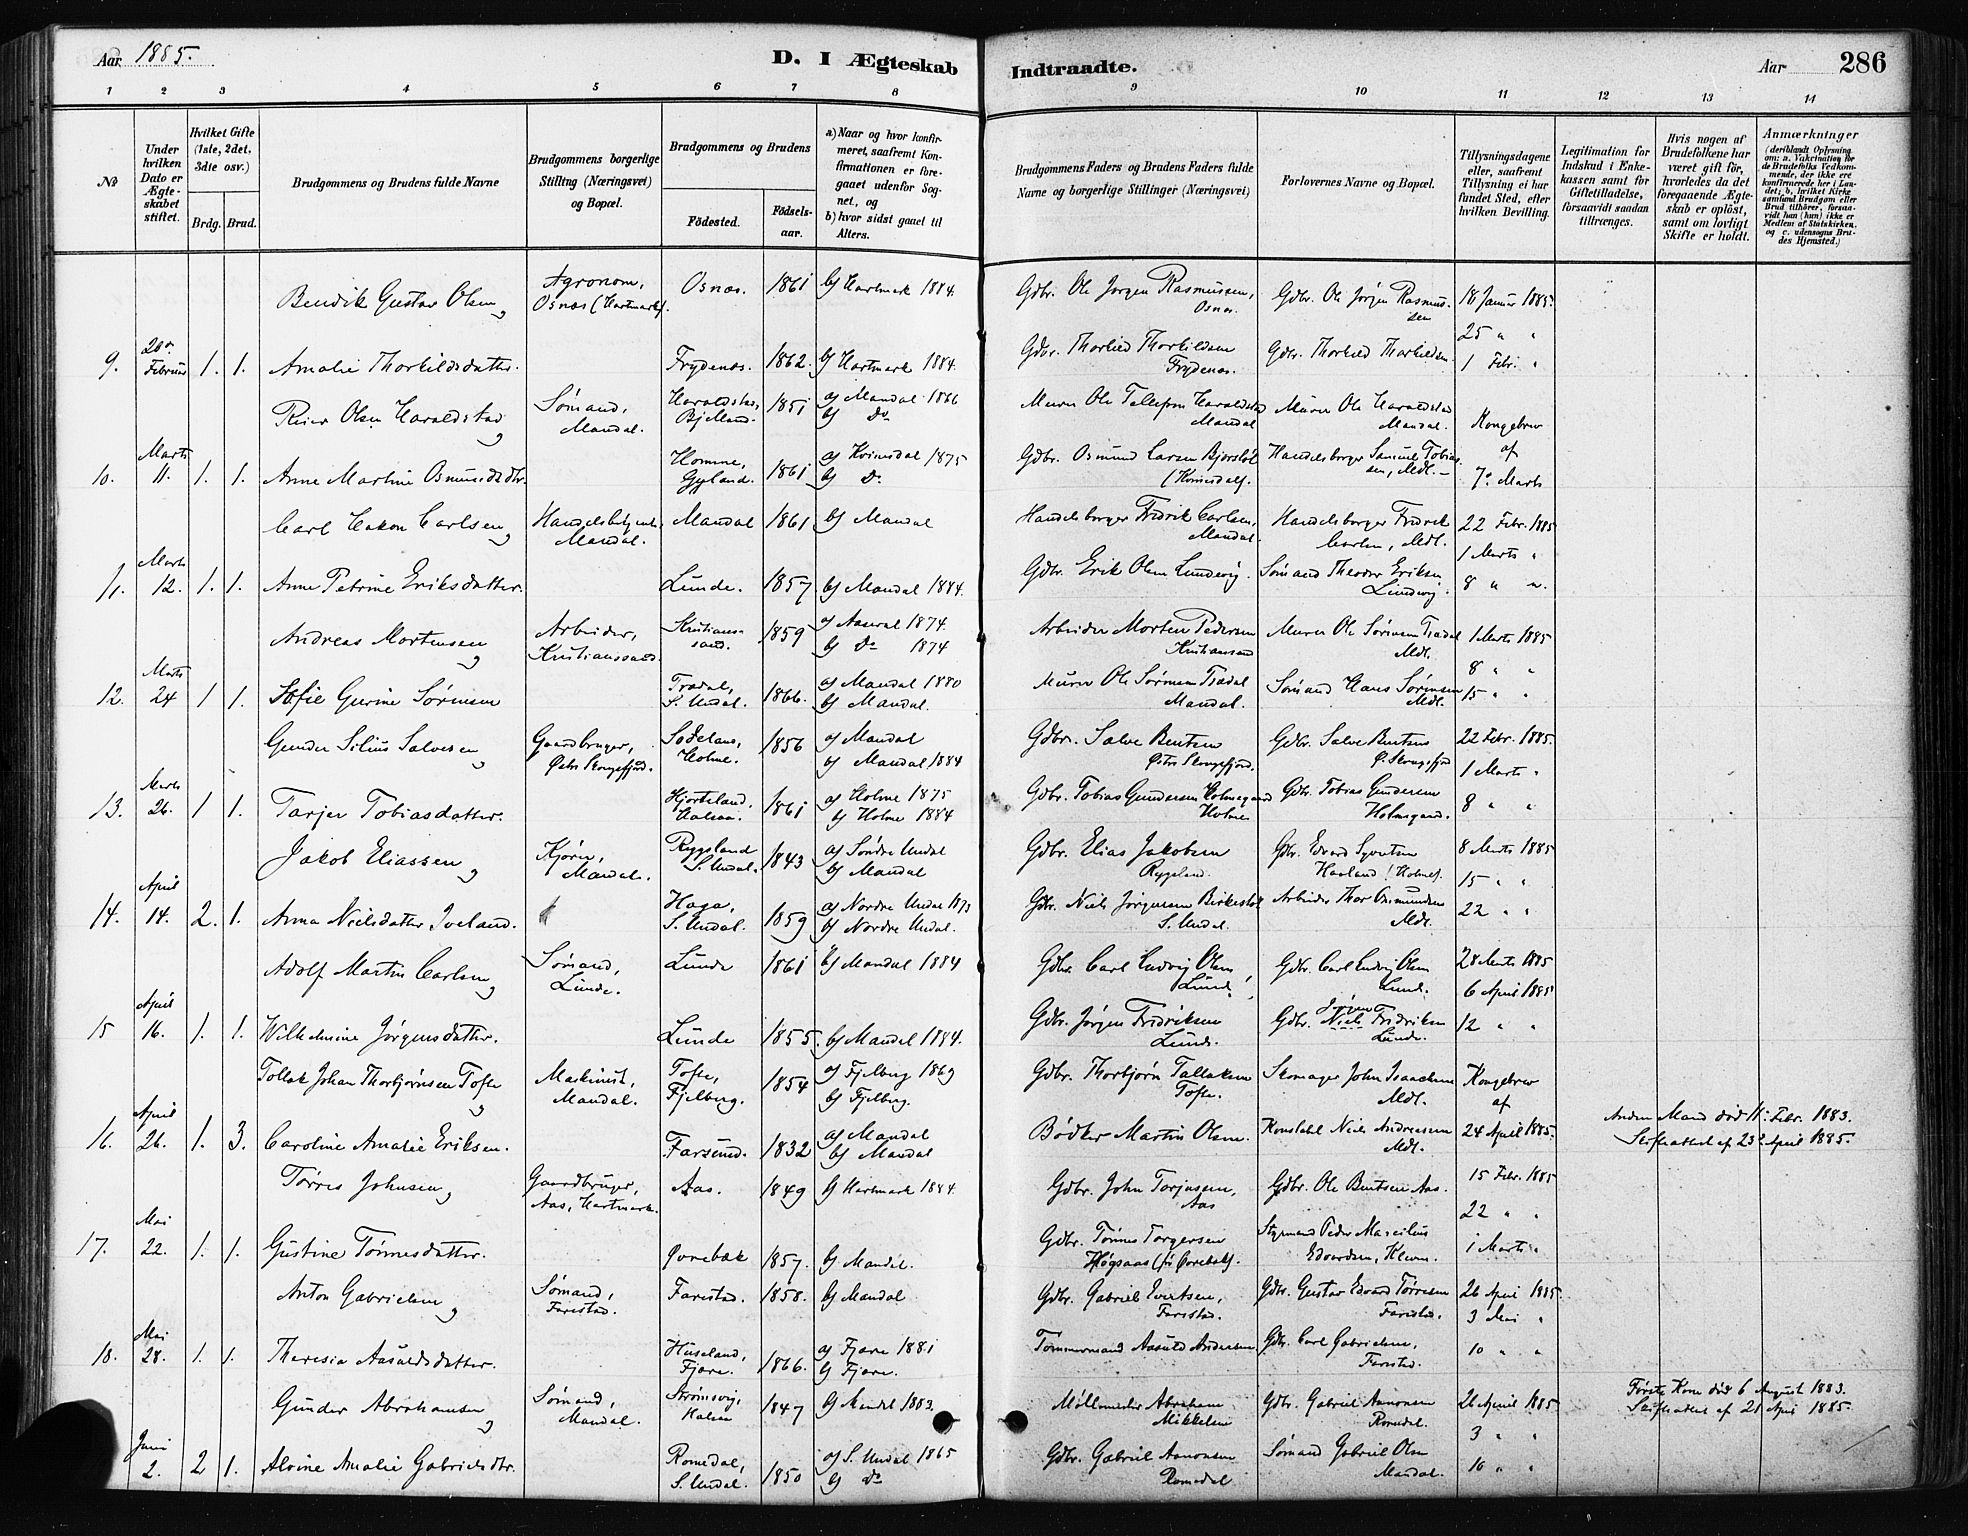 Aar 1885.
D. I Ægteskab
Indtraadte.
Aar
286
1 2 3 4 5 6 7 8 9 10 11 12 13 14
No
Under hvilken Dato er Ægteskabet stiftet.
Hvilket Gifte (1ste, 2det, 3die osv.)
Brdg. Brud.
Brudgommens og Brudens fulde Navne
Brudgommens borgerlige Stilling (Næringsvei) og Bopæl.
Brudgommens og Brudens
Fødested.
Fødselsaar.
a) Naar og hvor konfirmeret, saafremt Konfirmationen er foregaaet udenfor Sognet, og
b) hvor sidst gaaet til Alters.
Brudgommens Faders og Brudens Faders fulde Navne og borgerlige Stillinger (Næringsvei)
Forlovernes Navne og Bopæl.
Tillysningsdagene eller, saafremt Tillysning ei har fundet Sted, efter hvilken Bevilling.
Legitimation for Indskud i Enkekassen samt for Giftetilladelse, forsaavidt saadan tiltrænges.
Hvis nogen af Brudefolkene har været gift før, hvorledes da det foregaaende Ægteskab er opløst, samt om lovligt Skifte er holdt.
Anmærkninger (deriblandt Oplysning om: a. Vakcination for de Brudefolks Vedkommende, der ikke ere konfirmerede her i Landet; b. hvilket Kirkesamfund Brudgom eller Brud tilhører, forsaavidt han (hun) ikke er Medlem af Statskirken, og c. udensogns Brudes Hjemsted.)
Bendik Gustav Olsen og Agronom, Osnæs (Hartmark). Osnæs. 1861 b) Hartmark 1884. Gdbr. Ole Jørgen Rasmussen, Osnæs. Gdbr. Ole Jørgen Rasmussen 18 Januar 1885.
25 " "
9. 20de Februar 1. 1. Amalie Thorkildsdatter. Frydenæs. 1862. b) Hartmark 1884. Gdbr. Thorkild Thorkildsen Frydenæs. Gdbr. Thorkild Thorkildsen. 1 Febr. "
Reier Olsen Haraldstad og Sømand, Mandal. Haraldstad, Bjelland. 1851 a) Mandal 1866 b) Do Murer Ole Tellefsen Haraldstad Mandal Murer Ole Haraldstad Mandal. Kongebrev
10. Marts 11. 1. 1. Anne Martine Osmundsdtr. Homme, Gyland. 1861 a) Kvinesdal 1875 b) Do Gdbr. Osmund Larsen (Kvinesdal). Handelsborger Samuel Tobiassen, Mdl. af 7de Marts
Carl Hakon Carlsen og Handelsbetjent, Mandal. Mandal 1861 b) Mandal Handelsborger Fredrik Carlsen, Mandal. Handelsborger Fredrik Carlsen, Mdl. 22 Febr. 1885
1 Marts "
11. Marts 12. 1. 1. Anne Petrine Eriksdatter. Lunde. 1857 b) Mandal 1884. Gdbr. Erik Olsen Lundevig. Sømand Theodor Eriksen Lundevig. 8 " "
Andreas Mortensen og Arbeider, Kristianssand. Kristianssand. 1859 a) Aaseral 1874. b) Do 1874 Arbeider Morten Pedersen Kristianssand Murer Ole Sørensen Tradal Mdl. 1 Marts 1885
8 " "
12. Marts 24 1 1. Sofie Gurine Sørensen Tradal, S. Undal. 1866. a) Mandal 1880 b) Mandal. Murer Ole Sørensen Tradal Mandal. Sømand Hans Sørensen Mdl. 15 " "
Gunder Silius Salvesen og Gaardbruger, Østre Skogsfjord. Holme. 1856 a) Mandal b) Mandal 1884 Gdbr. Salve Bentsen Østre Skogsfjord. Gdbr. Salve Bentsen Ø. Skogsfjord 22 Febr. 1885.
1 Marts "
13. Marts 26. 1 1. Tarjer Tobiasdatter. Hjorteland. Halsaa. 1861 a) Holme 1875 b) Holme 1884 Gdbr. Tobias Gundersen Holmegaard Holme Gdbr. Tobias Gundersen Holmegaard. 8 " "
Jakob Eliassen og Kjører, Mandal. Rygsland S. Undal. 1843 a) Søndre Undal b) Mandal Gdbr. Elias Jakobsen Rygsland. Gdbr. Edvard Syvertsen Haaland (Holme). 8 Marts 1885
15 " "
14. April 14. 2. 1. Anna Nielsdatter Iveland. Haga, S. Undal. 1859 a) Nordre Undal 1873 b) Nordre Undal. Gdbr. Niels Jørgensen S. Undal. Arbeider Thor Osmundsen Mdl. 22 " "
Adolf Martin Carlsen og Sømand, Lunde. Lunde 1861 b) Mandal 1884 Gdbr. Carl Ludvig Olsen, Lunde. Gdbr. Carl Ludvig Olsen Lunde. 28 Marts 1885
6 April 1885
15 April 16. 1. 1. Wilhelmine Jørgensdatter. Lunde 1855. b) Mandal 1884. Gdbr. Jørgen Fredriksen Lunde. Gdbr. Jørgen Niels Fredriksen Lunde. 12 " "
Tollak Johan Thorbjørnsen Tofte og Maskinist, Mandal. Tofte, Fjelberg. 1854 a) Fjelberg 1869 b) Fjelberg. Gdbr. Thorbjørn Tallaksen Tofte. Skomager John Isaachsen Mdl. Kongebrev af
16. April 26. 1. 3. Caroline Amalie Eriksen. Farsund. 1832 a) Mandal b) Mandal Bødker Martin Olsen. Konstabel Niels Andreassen Mdl. 24 April 1885. Anden Mand død 11. Febr. 1883. Skifteattest af 23de April 1885.
Tørres Johnsen og Gaardbruger, Aas, Hartmark. Aas. 1849 b) Hartmark 1884. Gdbr. John Torjussen, Aas Gdbr. Ole Bentsen Aas. 15 Febr. 1885
22 " "
17. Mai 22. 1. 1. Gustine Tønnesdatter. Øvrebæk 1857. b) Mandal. Gdbr. Tønnes Torgersen Høgsaas (fr. Øvrebæk). Styrmand Peder Marcelius Edvardsen, Kleven. 1 Marts "
Anton Gabrielsen og Sømand, Farestad. Farestad. 1858. b) Mandal Gdbr. Gabriel Evertsen, Farestad. Gdbr. Gustav Edvard Tørresen Farestad. 26 April 1885.
3 Mai "
18. Mai 28. 1. 1. Theresia Aasuldsdatter. Huseland, Fjære. 1866. a) Fjære 1881 b) Fjære. Tømmermand Aasuld Andersen Gdbr. Carl Gabrielsen, Farestad. 10 " "
Gunder Abrahamsen og Sømand, Mandal. Strømsvig, Halsaa 1847 b) Mandal 1883. Møllemester Abraham Mikkelsen Gdbr. Gabriel Aanonsen Romedal. 26 April 1885 Første Kone død 6 August 1883. Skifteattest af 21 April 1885.
3 " "
Juni 2. 2 1. Alvine Amalie Gabrielsdtr. Romedal, S. Undal. 1850 a) S. Undal 1865 b) Do Gdbr. Gabriel Aanonsen Romedal Sømand Gabriel Olsen Mandal. 10 " "